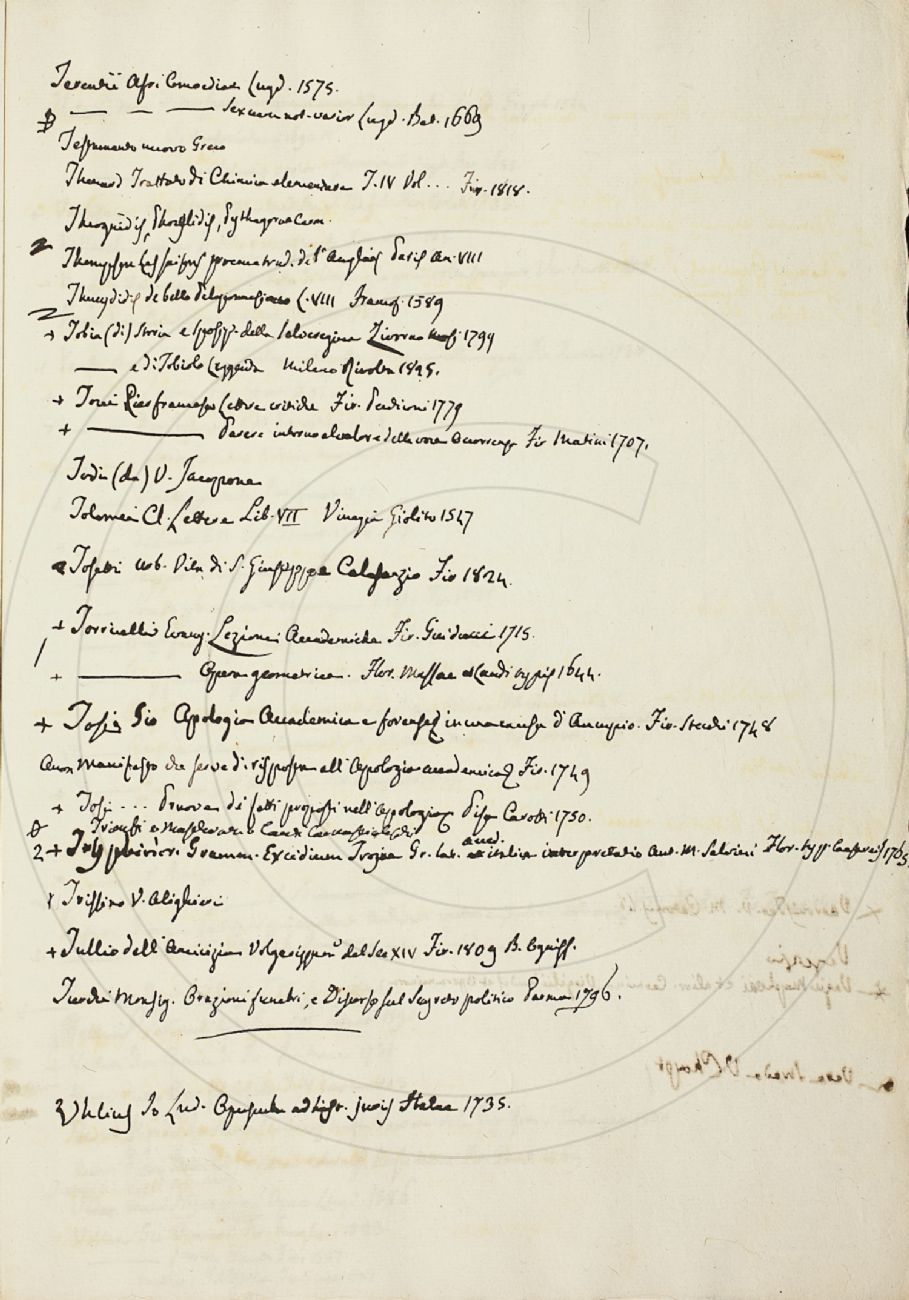 Terentii Afri Comoediae Lugd. 1575.
— — — sex cum not. varior Lugd. Bat. 1669
Testamento nuovo Greco
Thenard Trattato di Chimica elementare T. IV Vol... Fir. 1818.
Theognidis, Phocylidis, Pythagorae Carm.
Thompson Les Saisons poeme trad. de l'Anglois Paris An. VIII
Thucydidis de bello Peloponnesiaco L. VIII Francof. 1589
+ Tobia (di) Storia e sposiz. della Salveregina Livorno Masi 1799
— e di Tobiolo Leggenda Milano Rivolta 1825.
+ Tocci Pier francesco Lettere critiche Fir. Pecchioni 1779
+ — Parere intorno al valore della voce Occorrenza Fir Matini 1707.
Todi (da) V. Jacopone
Tolomei Cl. Lettere Lib. VII Vinegia Giolito 1547
Tosetti Urb. Vita di S. Giuseppe Calasanzio Fir 1824.
+ Torricelli Evang. Lezioni Accademiche Fir. Guiducci 1715.
+ — Opera geometrica. Flor. Massae et Landi typis 1644.
+ Tosi Gio Apologia Accademica e forense in una causa d'Aucupio. Fir. Stecchi 1748
Anon Manifesto che serve di risposta all'Apologia accademica Fir. 1749
+ Tosi ... Pruova de fatti proposti nell'Apologia Pisa Carotti 1750.
Trionfi e Mascherate o Canti Carnascialeschi
aucd.
2 + Tryphiodori Gramm. Excidium Trojae Gr. lat. et italica interpretatio Ant. M. Salvini Flor. typ. Caesareis 1765
Trissino V. Alighieri
+ Tullio dell'Amicizia Volgarizzam.º del Sec XIV Fir. 1809 B.
Turchi Monsig. Orazioni funebri, e Discorso sul Segreto politico Parma 1796.
Uhlius Io Lud. Opuscula ad hist. juris Italae 1735.